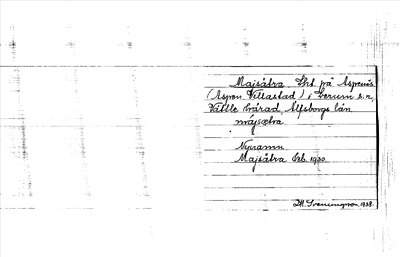 Majsätra, Lht. på Aspenäs
(Aspen Villastad) i Lerum sn,
Vättle härad, Älfsborgs län
májsætra
Nynamn.
Majsätra lht. 1930
M. Svenungson 1938